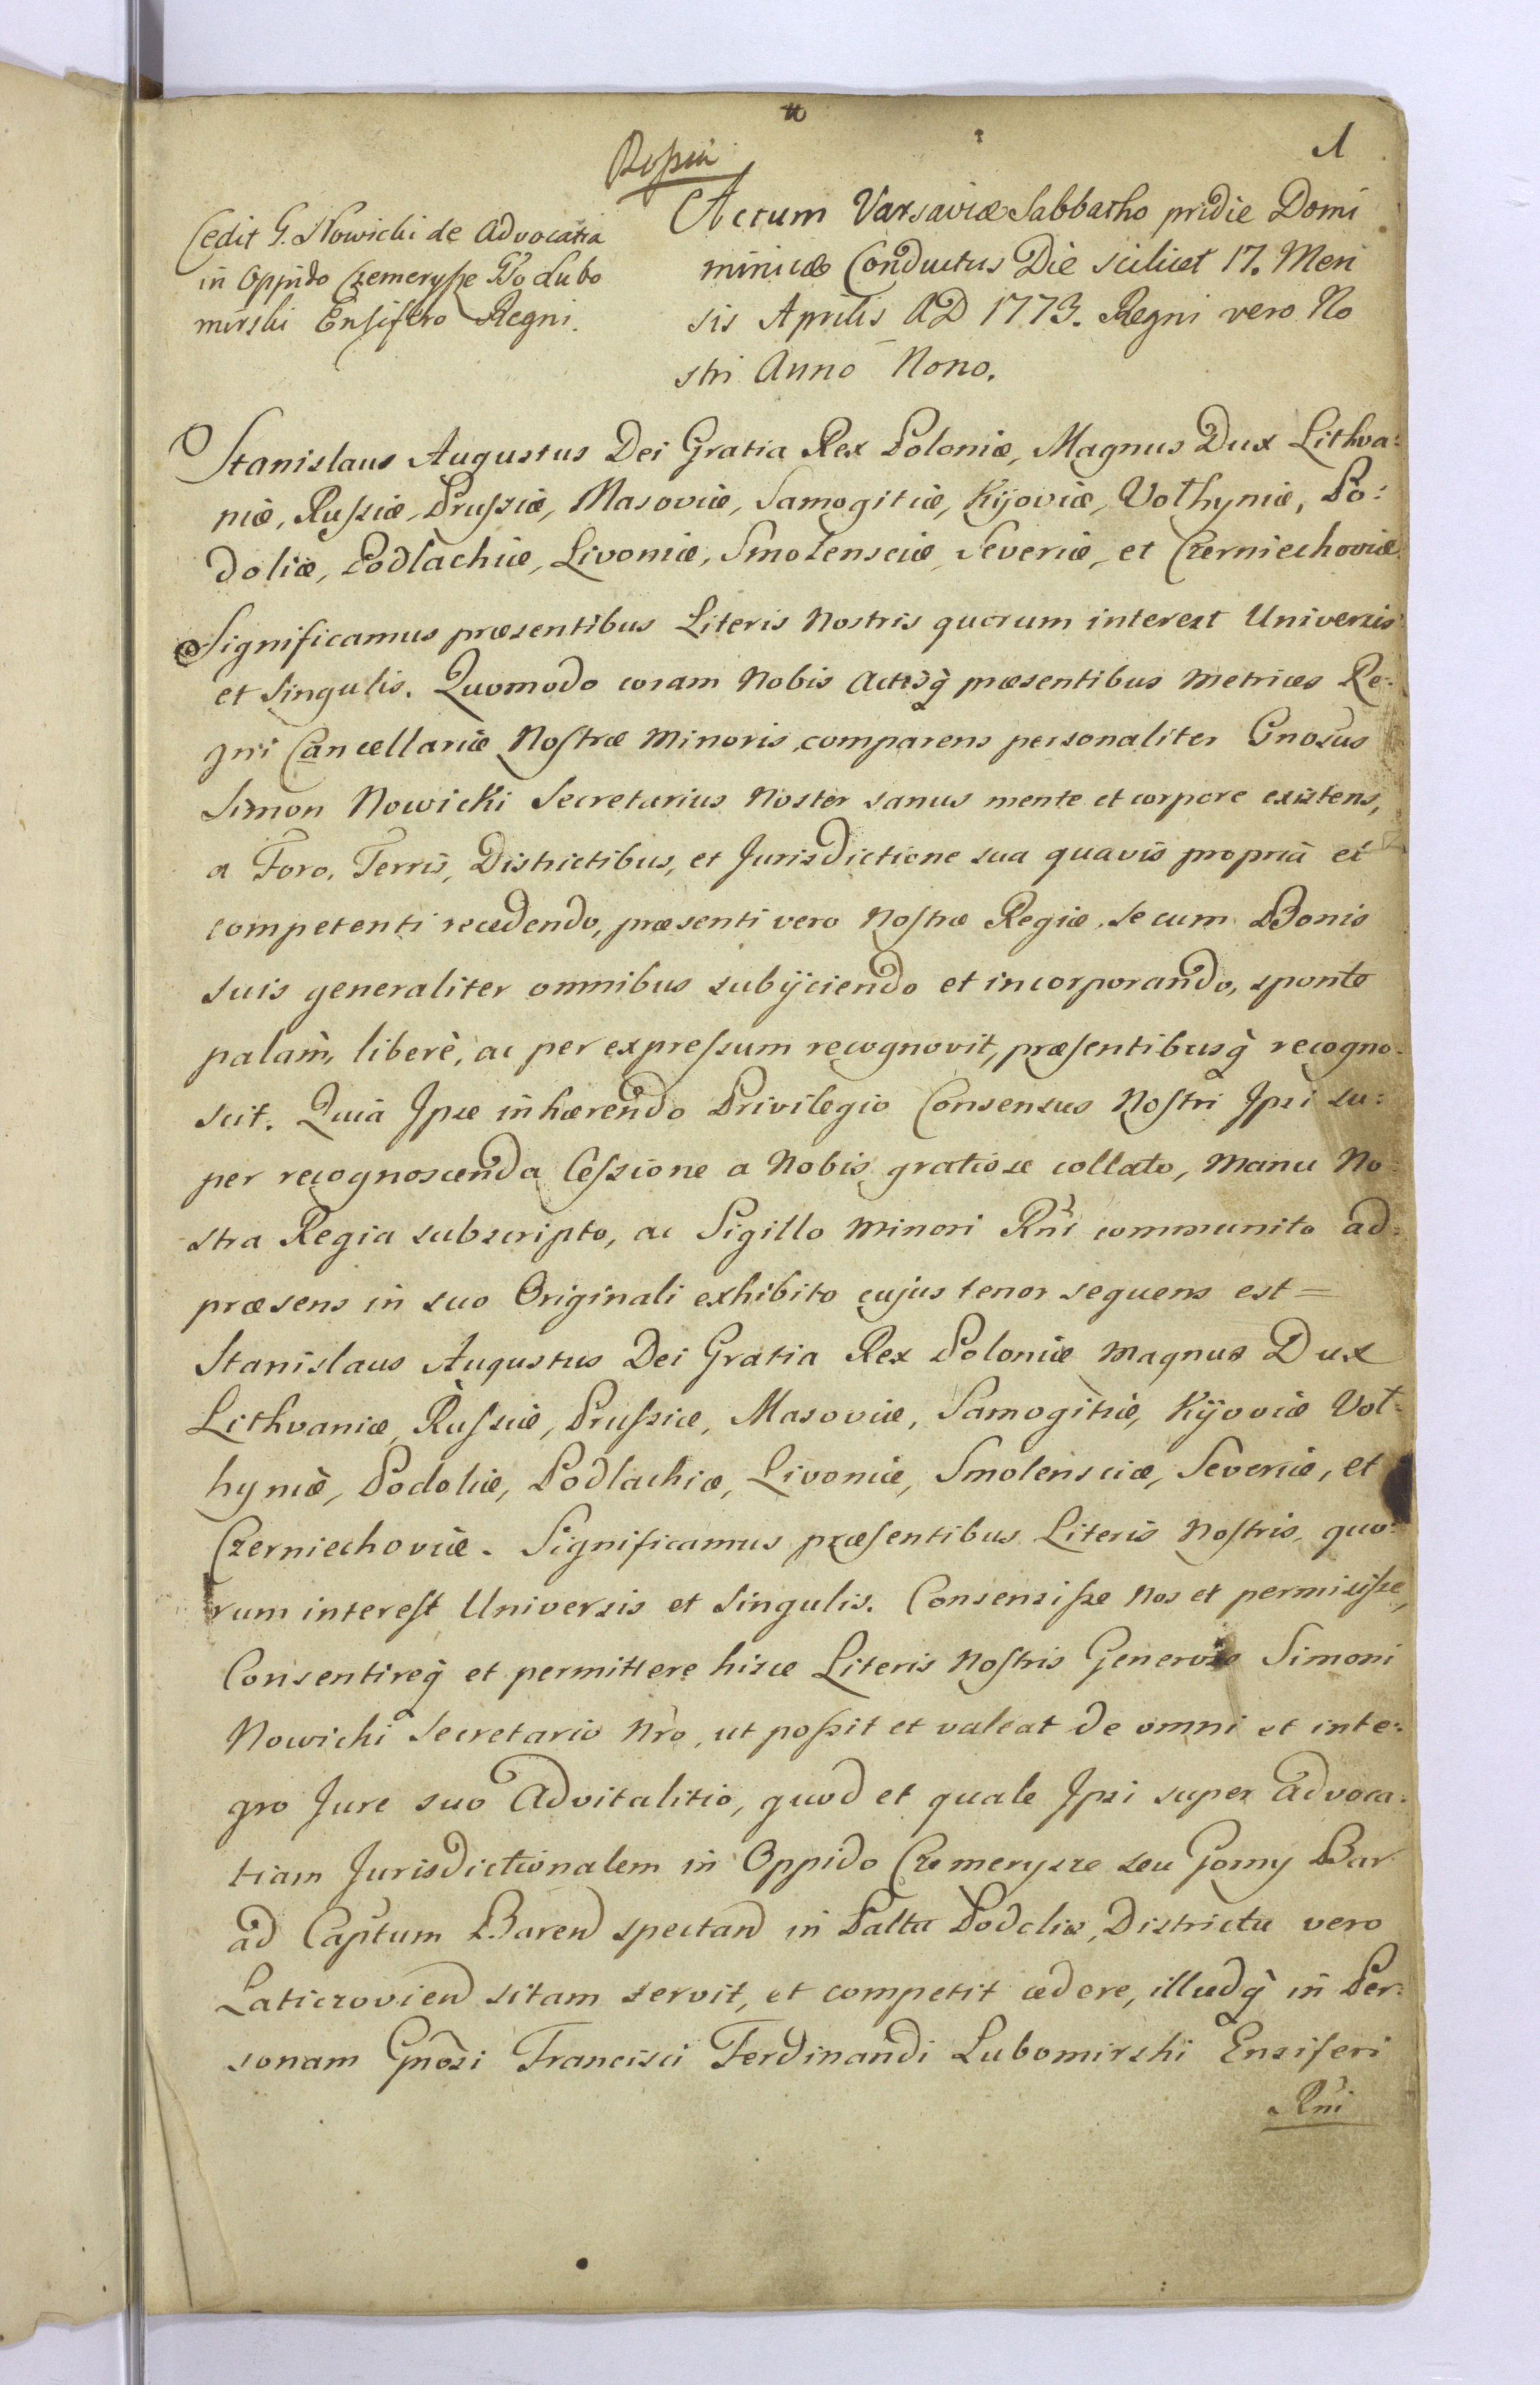 1
Cedit G. Nowicki de Advocatia
in Oppido Czemerysze Gso Lubo
mirski Ensifero Regni.
Actum Varsaviæ Sabbatho pridie Domi
minicæ Conductus Die scilicet 17. Men
sis Aprilis AD 1773. Regni vero No
stri Anno Nono.
Stanislaus Augustus Dei Gratia Rex Poloniæ, Magnus Dux Lithva:
niæ, Russiæ, Prussiæ, Masoviæ, Samogitiæ, Kijoviæ, Volhyniæ, Po:
doliæ, Podlachiæ, Livoniæ, Smolensciæ, Severiæ, et Czerniechoviæ
Significamus præsentibus Literis Nostris quorum interest Universis
et Singulis. Quomodo coram Nobis Actisq̀ præsentibus Metrices Re:
gni Cancellariæ Nostræ Minoris comparens personaliter Gnosus
Simon Nowicki Secretarius Noster sanus mente et corpore existens,
a Foro, Terris, Districtibus, et Jurisdictione sua quavis propriâ et
competenti recedendo, præsenti vero Nostræ Regiæ, se cum Bonis
suis generaliter omnibus subijciendo et incorporando, sponte
palam, liberè, ac per expressum recognovit, præsentibusq̀ recogno:
scit. Quia Ipse inhærendo Privilegio Consensus Nostri Ipsi su:
per recognoscenda Cessione a Nobis gratiose collato, Manu No:
stra Regia subscripto, ac Sigillo Minori Rni communito ad:
præsens in suo Originali exhibito cujus tenor sequens est =
Stanislaus Augustus Dei Gratia Rex Poloniæ Magnus Dux
Lithvaniæ, Russiæ, Prussiæ, Masoviæ, Samogitiæ, Kijoviæ Vol:
hyniæ, Podoliæ, Podlachiæ, Livoniæ, Smolensciæ, Severiæ, et
Czerniechoviæ. Significamus præsentibus Literis Nostris, quo:
rum interest Universis et Singulis. Consensisse Nos et permisisse,
Consentireq̀ et permittere hisce Literis Nostris Generoso Simoni
Nowicki Secretario Nro, ut possit et valeat de omni et inte:
gro Jure suo Advitalitio, quod et quale Ipsi super Advoca:
tiam Jurisdictionalem in Oppido Czemerysze seu Gorny Bar
ad Captum Baren spectan in Paltu Podoliæ, Districtu vero
Laticzovien sitam servit, et competit cedere, illudq̀ in Per:
sonam Gnosi Francisci Ferdinandi Lubomirski Ensiferi
Rni